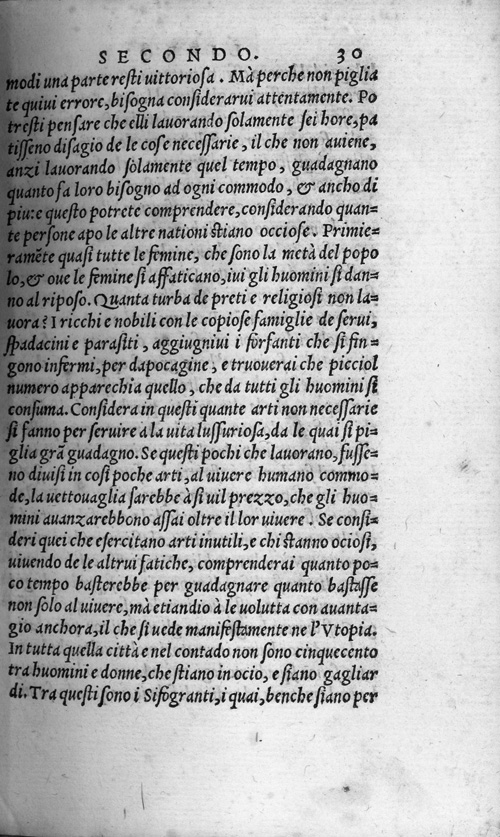 SECONDO. 30
modi una parte resti uittoriosa. Mà perche non piglia
te quiui errore, bisogna considerarui attentamente. Po
tresti pensare che elli lauorando solamente sei hore, pa
tisseno disagio de le cose necessarie, il che non auiene,
anzi lauorando sòlamente quel tempo, guadagnano
quanto fa loro bisogno ad ogni commodo, & ancho di
piu: e questo potrete comprendere, considerando quan=
te persone apo le altre nationi stiano occiose. Primie=
ramẽte quasi tutte le femine, che sono la metà del popo
lo, & oue le femine si affaticano, iui gli huomini si dan=
no al riposo. Quanta turba de preti e religiosi non la=
uora? I ricchi e nobili con le copiose famiglie de serui,
spadacini e parasiti, aggiugniui i forfanti che si fin=
gono infermi, per dapocagine, e truouerai che picciol
numero apparechia quello, che da tutti gli huomini si
consuma. Considera in questi quante arti non necessarie
si fanno per seruire à la uita lussuriosa, da le quai si pi=
glia grã guadagno. Se questi pochi che lauorano, fusse=
no diuisi in cosi poche arti, al uiuere humano commo=
de, la uettouaglia sarebbe à si uil prezzo, che gli huo=
mini auanzarebbono assai oltre il lor uiuere. Se consi=
deri quei che esercitano arti inutili, e chi stanno ociosi,
uiuendo de le altrui fatiche, comprenderai quanto po=
co tempo basterebbe per guadagnare quanto bastasse
non solo al uiuere, mà etiandio à le uolutta con auanta=
gio anchora, il che si uede manifestamente ne l'Vtopia.
In tutta quella città e nel contado non sono cinquecento
tra huomini e donne, che stiano in ocio, e siano gagliar
di. Tra questi sono i Sifogranti, i quai, benche siano per